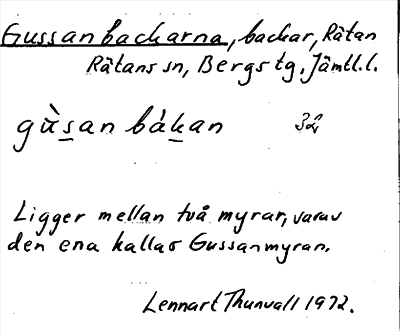 Gussanbackarna, backar, Rätan
Rätans sn, Bergs tg, Jämtl.l.
gùs̲an bák̲an 32
Ligger mellan två myrar, varav
den ena kallas Gussanmyran.
Lennart Thunvall 1972.